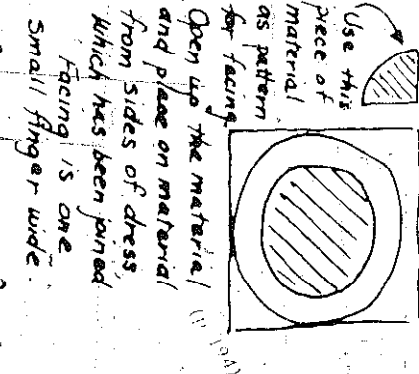 Use this
piece of
material
as pattern
for facing
Open up the material
and place on material
from sides of dress,
which has been joined
Facing is one
small finger wide.